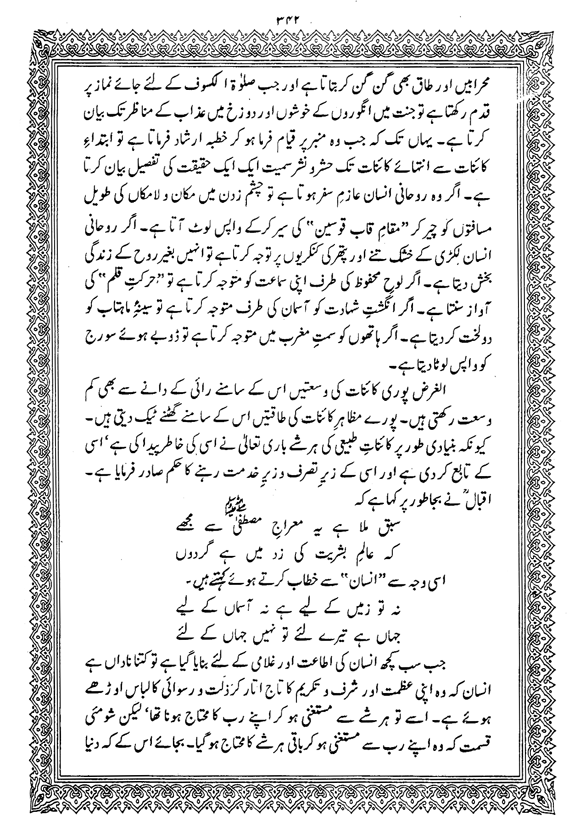 ۳۴۲
محرابیں اور طاق بھی گن گن کر بتاتا ہے اور جب صلوٰۃ الکسوف کے لئے جائے نماز پر
قدم رکھتا ہے تو جنت میں انگوروں کے خوشوں اور دوزخ میں عذاب کے مناظر تک بیان
کرتا ہے۔ یہاں تک کہ جب وہ منبر پر قیام فرما ہو کر خطبہ ارشاد فرماتا ہے تو ابتداءِ
کائنات سے انتہائے کائنات تک حشر و نشر سمیت ایک ایک حقیقت کی تفصیل بیان کرتا
ہے۔ اگر وہ روحانی انسان عازمِ سفر ہوتا ہے تو چشم زدن میں مکان و لامکاں کی طویل
مسافتوں کو چیر کر ”مقامِ قاب قوسین“ کی سیر کرکے واپس لوٹ آتا ہے۔ اگر روحانی
انسان لکڑی کے خشک تنے اور پتھر کی کنکریوں پر توجہ کرتا ہے تو انہیں بغیر روح کے زندگی
بخش دیتا ہے۔ اگر لوحِ محفوظ کی طرف اپنی سماعت کو متوجہ کرتا ہے تو ”حرکتِ قلم“ کی
آواز سنتا ہے۔ اگر انگشتِ شہادت کو آسمان کی طرف متوجہ کرتا ہے تو سینۂ ماہتاب کو
دولخت کر دیتا ہے۔ اگر ہاتھوں کو سمتِ مغرب میں متوجہ کرتا ہے تو ڈوبے ہوئے سورج
کو واپس لوٹا دیتا ہے۔
الغرض پوری کائنات کی وسعتیں اس کے سامنے رائی کے دانے سے بھی کم
وسعت رکھتی ہیں۔ پورے مظاہرِ کائنات کی طاقتیں اس کے سامنے گھٹنے ٹیک دیتی ہیں۔
کیونکہ بنیادی طور پر کائناتِ طبیعی کی ہر شے باری تعالیٰ نے اسی کی خاطر پیدا کی ہے‘ اسی
کے تابع کر دی ہے اور اسی کے زیرِ تصرف و زیرِ خدمت رہنے کا حکم صادر فرمایا ہے۔
اقبالؒ نے بجا طور پر کہا ہے کہ
سبق ملا ہے یہ معراجِ مصطفیٰ ﷺ سے مجھے
کہ عالمِ بشریت کی زد میں ہے گردوں
اسی وجہ سے ”انسان“ سے خطاب کرتے ہوئے کہتے ہیں۔
نہ تو زمیں کے لیے ہے نہ آسماں کے لیے
جہاں ہے تیرے لئے تو نہیں جہاں کے لئے
جب سب کچھ انسان کی اطاعت اور غلامی کے لئے بنایا گیا ہے تو کتنا ناداں ہے
انسان کہ وہ اپنی عظمت اور شرف و تکریم کا تاج اتار کر ذلت و رسوائی کا لباس اوڑھے
ہوئے ہے۔ اسے تو ہر شے سے مستغنی ہو کر اپنے رب کا محتاج ہونا تھا‘ لیکن شومئی
قسمت کہ وہ اپنے رب سے مستغنی ہو کر باقی ہر شے کا محتاج ہو گیا۔ بجائے اس کے کہ دنیا